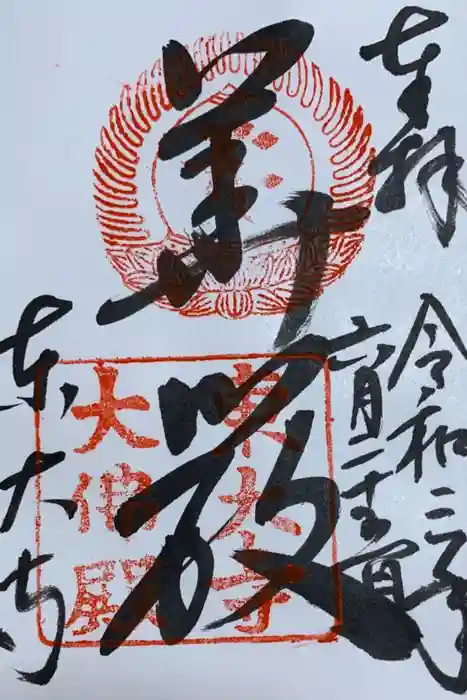 奉拝
令和三年
六月二十
華厳
東大寺
大佛殿
東大寺